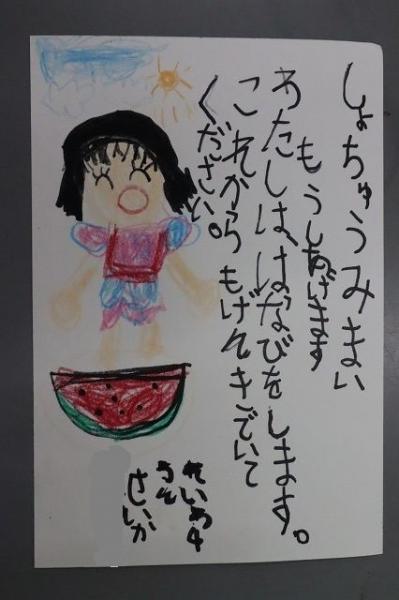 しょちゅうみまい
もうしあげます
わたしは、はなびをします。
これからもげんきでいて
ください。
れいわ4
せいか